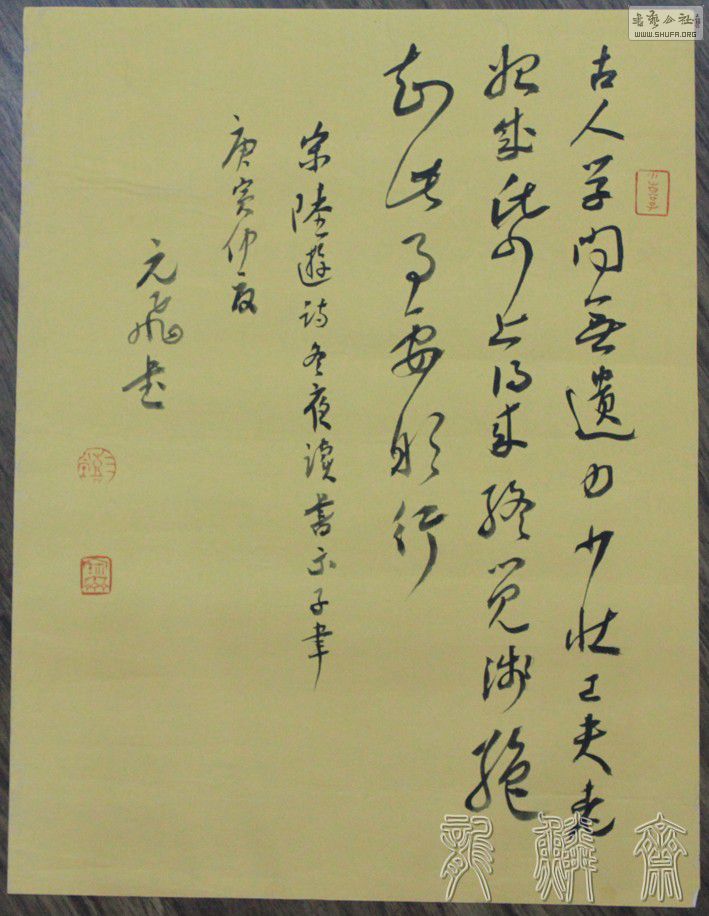 古人学问無遺力少壮工夫老
始成纸上得来终觉浅绝
知此事要躬行
宋陸遊诗冬夜讀書示子聿
庚寅仲夏
元飛书
書藝公社
WWW.SHUFA.ORG
龍鱗齋